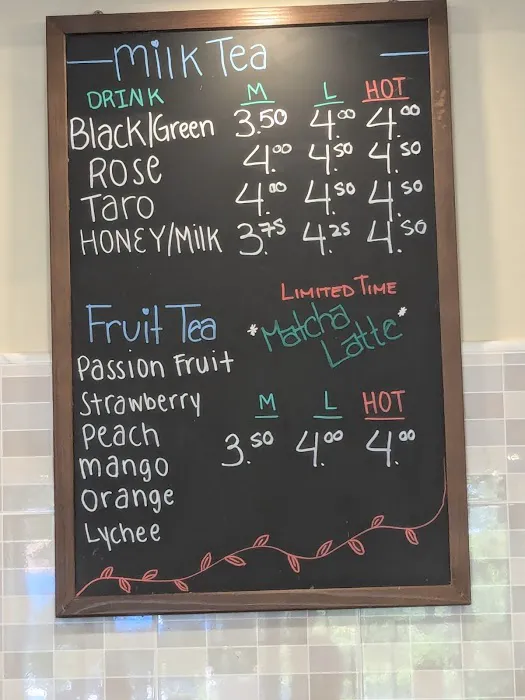 Milk Tea
DRINK M L HOT
Black/Green 3.50 4.00 4.00
ROSE 4.00 4.50 4.50
Taro 4.00 4.50 4.50
HONEY/Milk 3.75 4.25 4.50
LIMITED TIME
*Matcha Latte*
Fruit Tea
Passion Fruit
Strawberry M L HOT
Peach 3.50 4.00 4.00
mango
Orange
Lychee